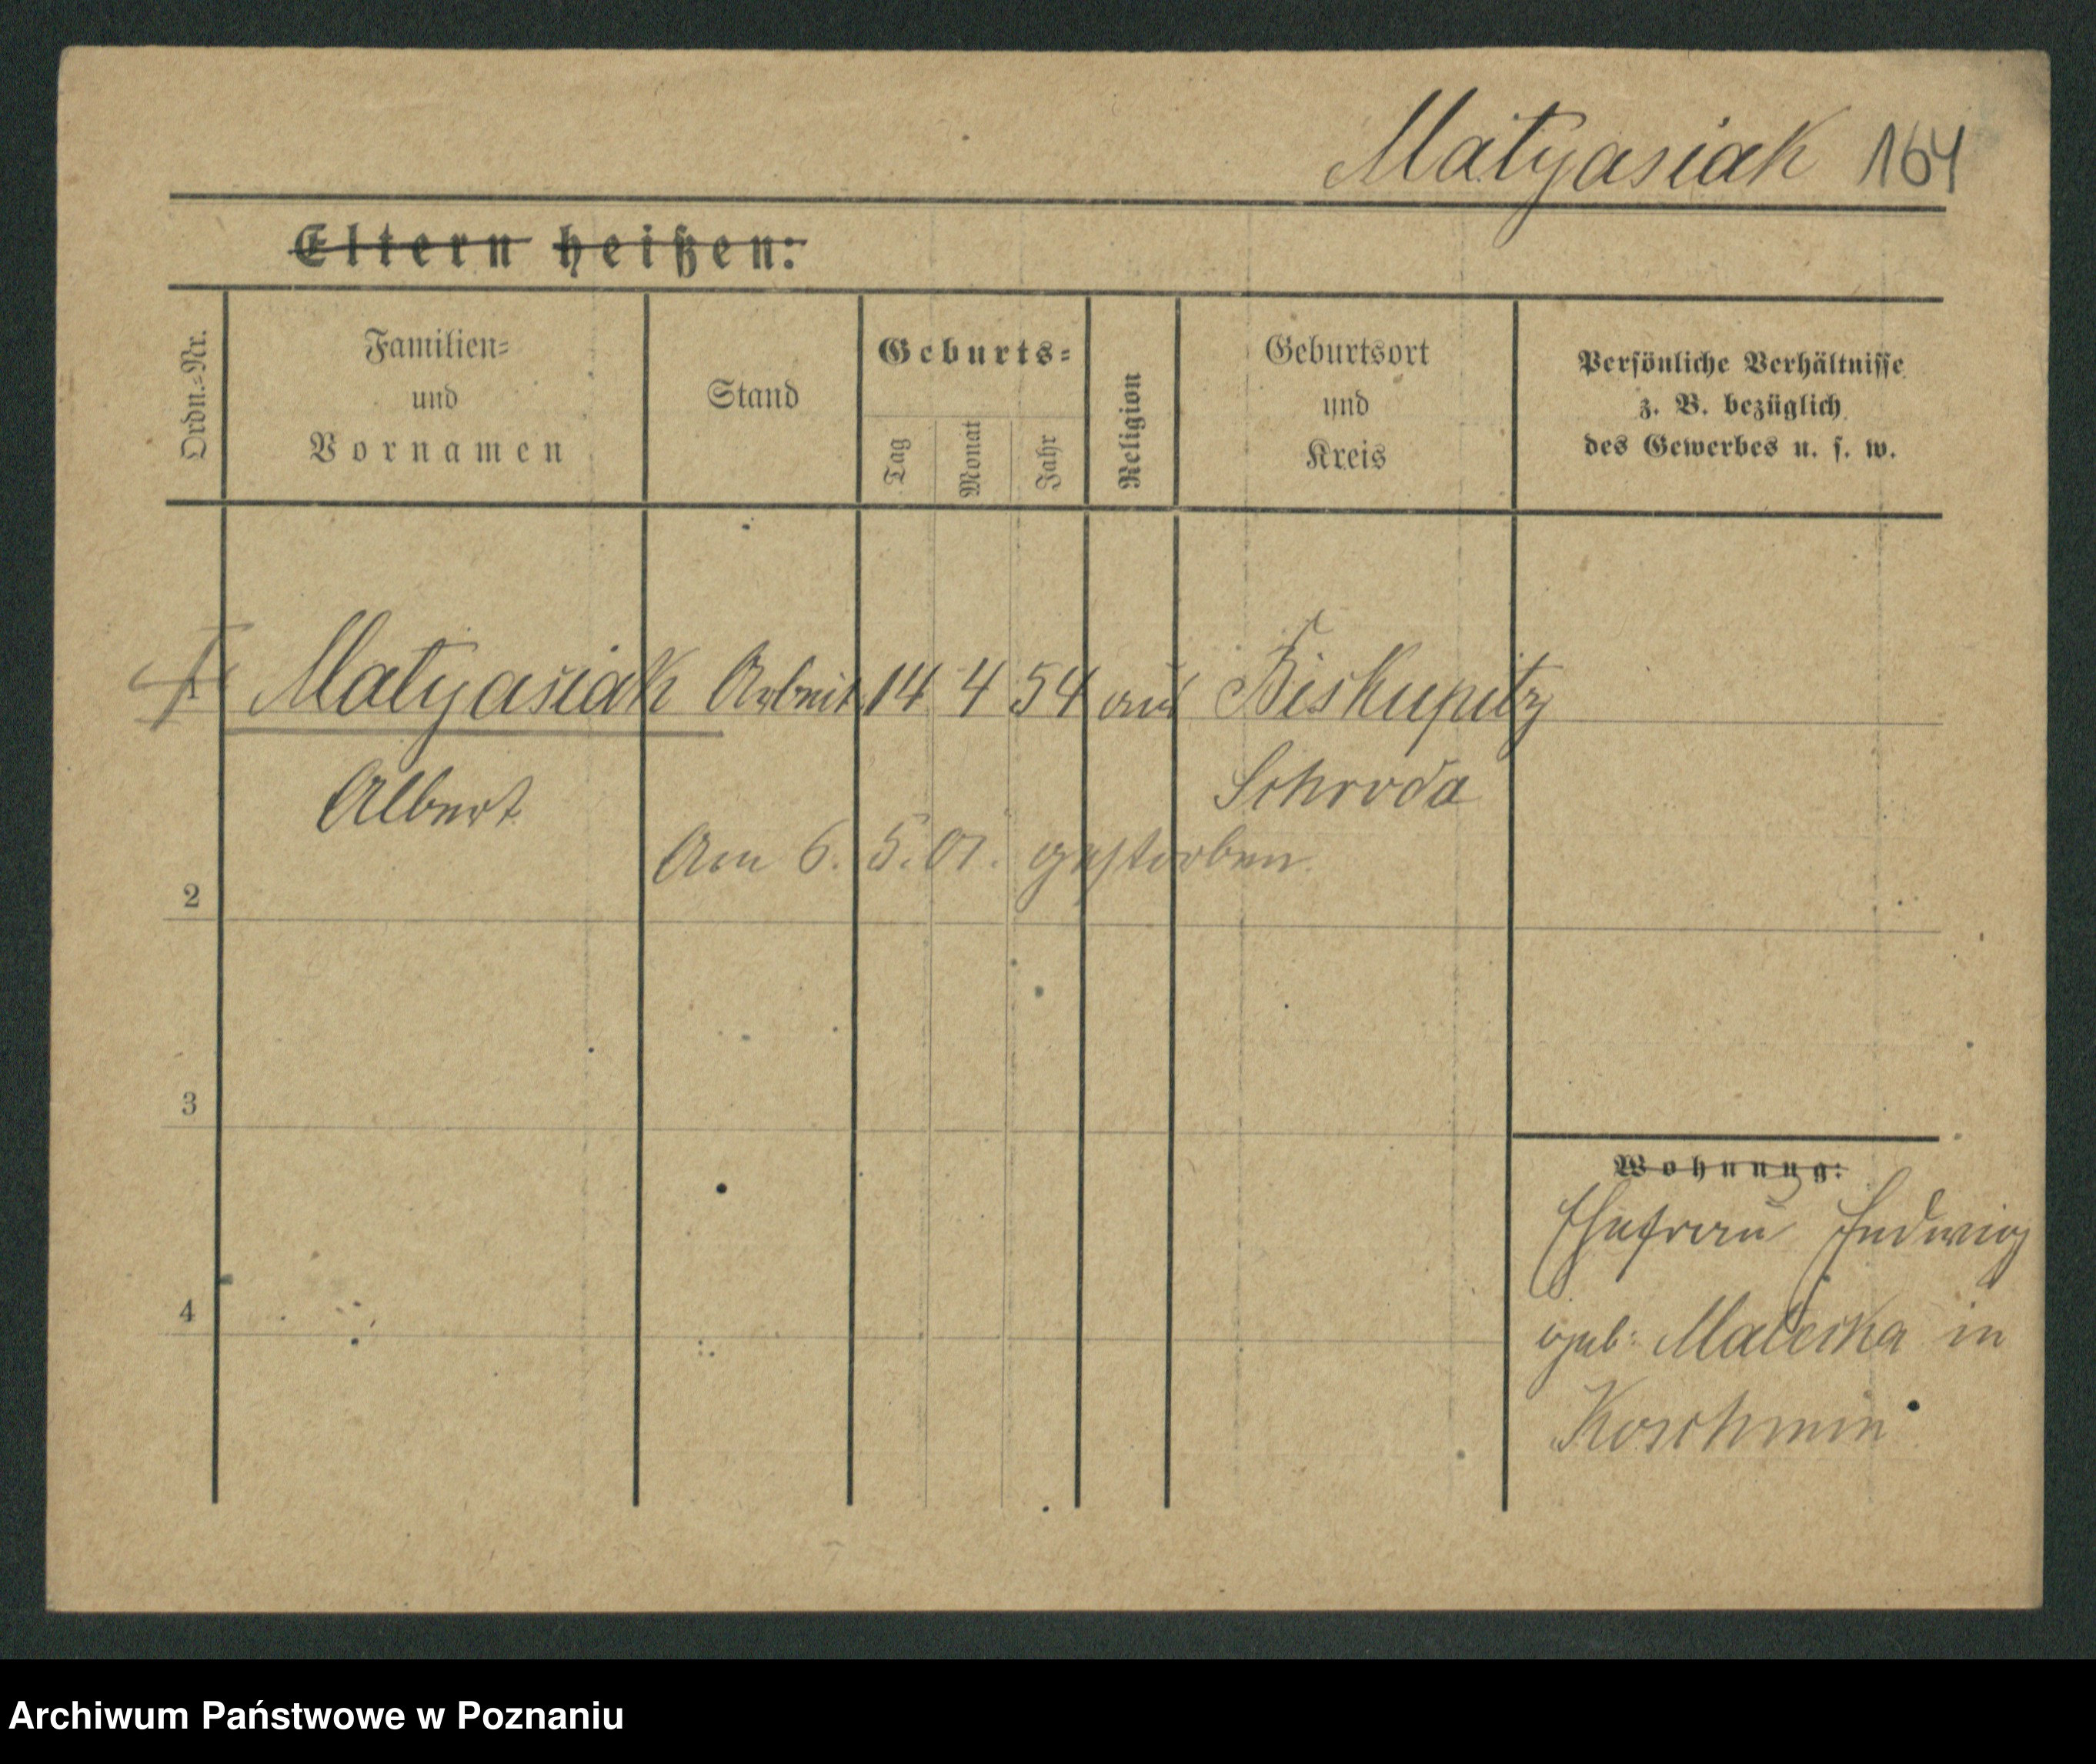 Matyasiak 164
Eltern heißen:
Ordn.=Nr.
Familien=
und
Vornamen
Stand
Geburts=
Tag
Monat
Jahr
Religion
Geburtsort
und
Kreis
Persönliche Verhältnisse
z. B. bezüglich
des Gewerbes u. s. w.
Matyasiak Arbeit 14 4 54 Biskupitz
Albert Schroda
Am 6. 5. 01. gestorben.
2
3
4
Wohnung:
Ehefrau Hedwig
geb: in
Koschmin
Archiwum Państwowe w Poznaniu